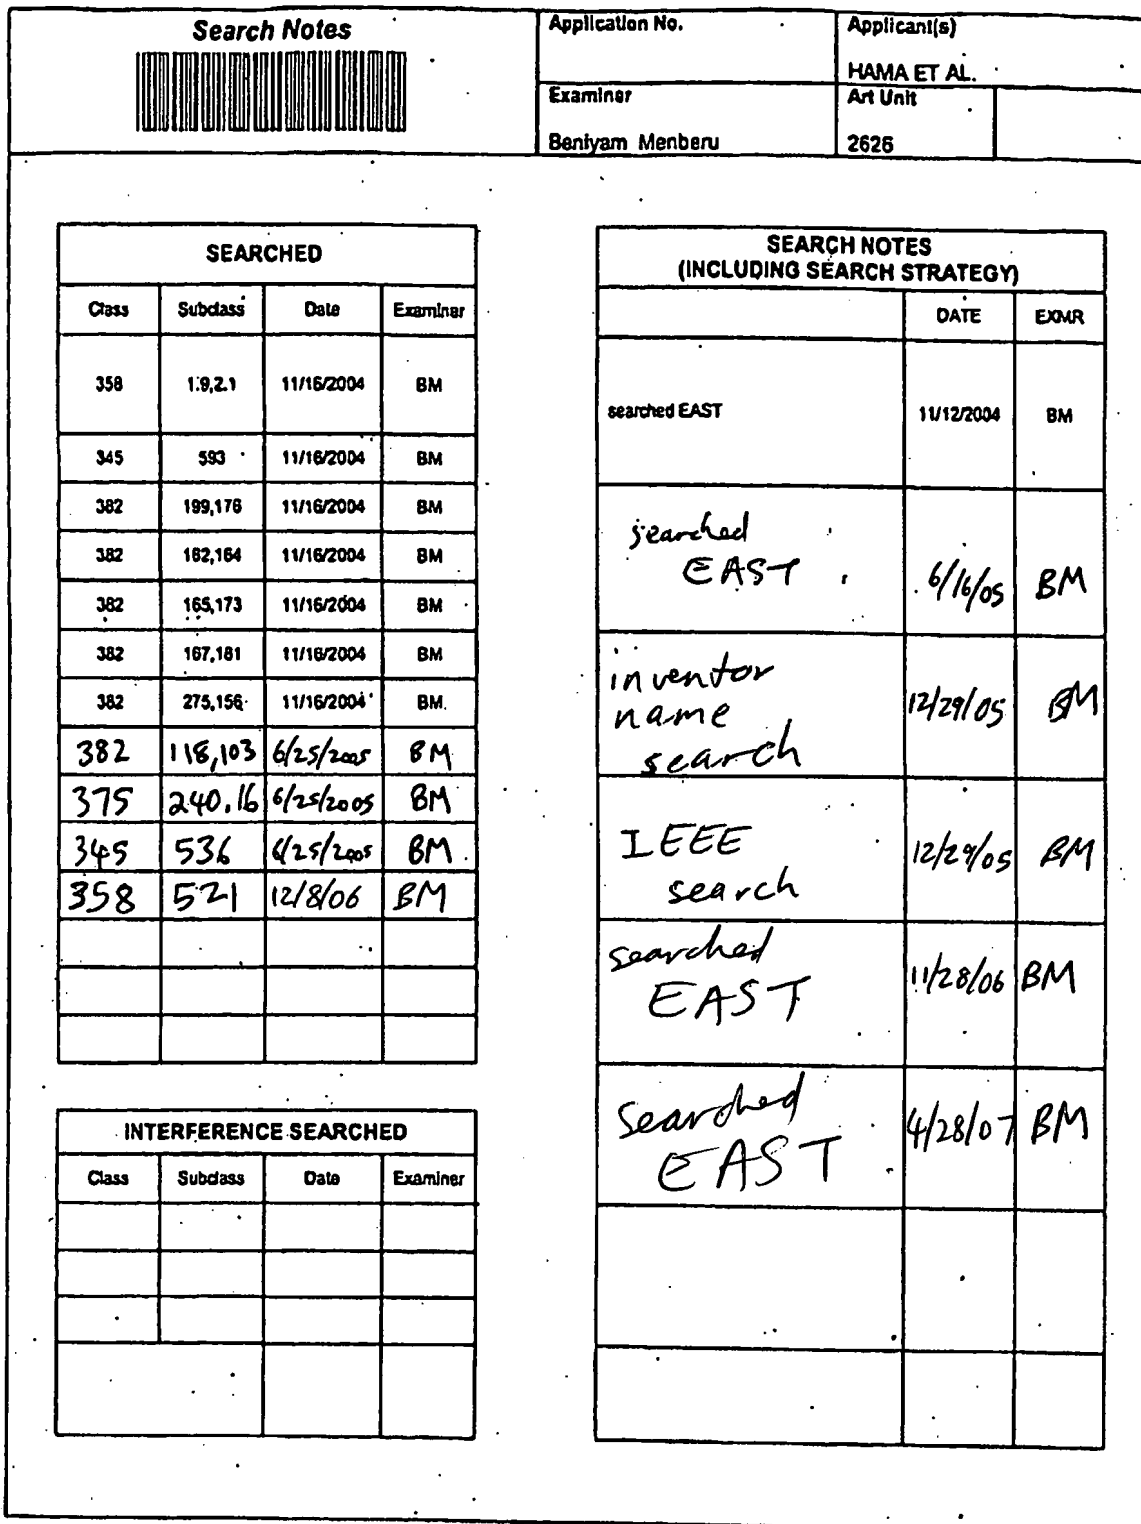 Search Notes
Application No.
Applicant(s)
HAMA ET AL.
Examiner
Art Unit
Beniyam Menberu
2626
SEARCHED
Class Subclass Date Examiner
358 1.9,2.1 11/16/2004 BM
345 593 11/16/2004 BM
382 199,176 11/16/2004 BM
382 162,164 11/16/2004 BM
382 165,173 11/16/2004 BM
382 167,181 11/16/2004 BM
382 275,156 11/16/2004 BM
382 118,103 6/25/2005 BM
375 240.16 6/25/2005 BM
345 536 6/25/2005 BM
358 521 12/8/06 BM
INTERFERENCE SEARCHED
Class Subclass Date Examiner
SEARCH NOTES
(INCLUDING SEARCH STRATEGY)
DATE EXMR
searched EAST 11/12/2004 BM
searched
EAST 6/16/05 BM
inventor
name 12/29/05 BM
search
IEEE 12/29/05 BM
search
searched
EAST 11/28/06 BM
Searched
EAST 4/28/07 BM